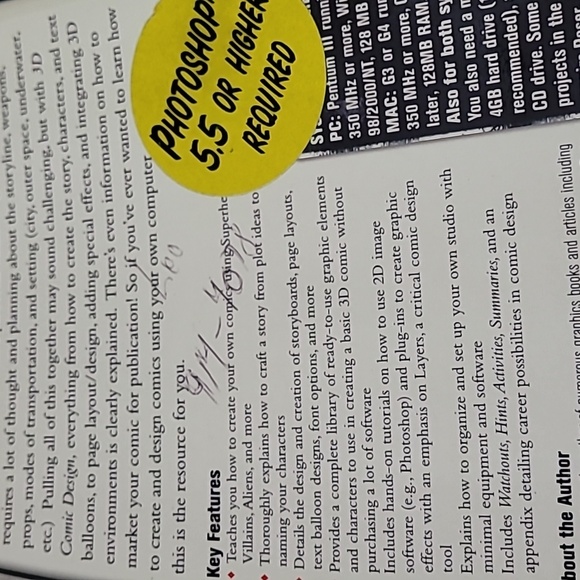 requires a lot of thought and planning about the storyline, weapons,
props, modes of transportation, and setting (city, outer space, underwater,
etc.) Pulling all of this together may sound challenging, but with 3D
Comic Design, everything from how to create the story, characters, and text
balloons, to page layout/design, adding special effects, and integrating 3D
environments is clearly explained. There's even information on how to
market your comic for publication! So if you've ever wanted to learn how
to create and design comics using your own computer
this is the resource for you.
PHOTOSHOP
5.5 OR HIGHER
REQUIRED
PC: Pentium III runn
350 MHz or more, Wi
98/2000/NT, 128 MB
MAC: G3 or G4 ru
350 MHz or more,
later, 128MB RAM
Also for both sy
You also need a
4GB hard drive
recommended),
CD drive. Some
projects in the
Key Features
Teaches you how to create your own comic using Superhe
Villains, Aliens, and more
Thoroughly explains how to craft a story from plot ideas to
naming your characters
Details the design and creation of storyboards, page layouts,
text balloon designs, font options, and more
Provides a complete library of ready-to-use graphic elements
and characters to use in creating a basic 3D comic without
purchasing a lot of software
Includes hands-on tutorials on how to use 2D image
software (e.g., Photoshop) and plug-ins to create graphic
effects with an emphasis on Layers, a critical comic design
tool
Explains how to organize and set up your own studio with
minimal equipment and software
Includes Watchouts, Hints, Activities, Summaries, and an
appendix detailing career possibilities in comic design
bout the Author
graphics books and articles including